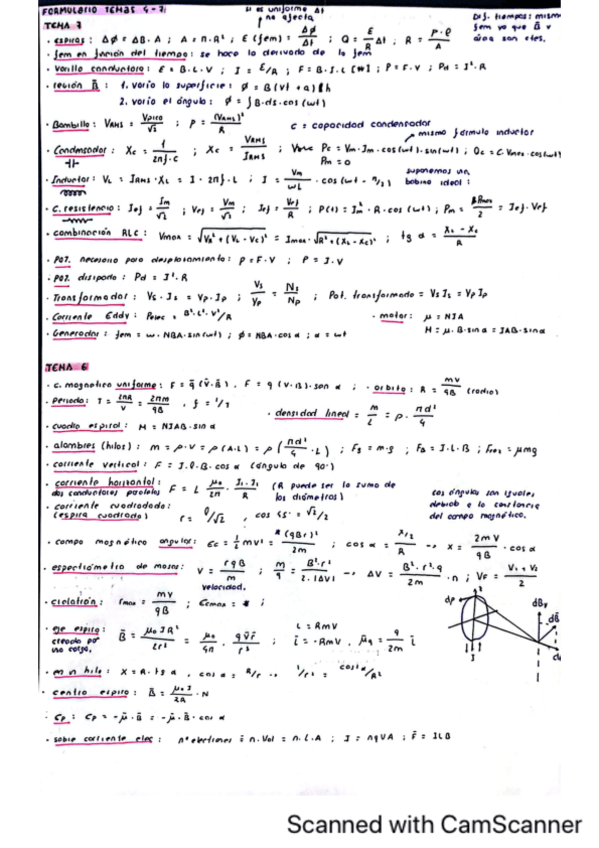 FORMULARIO TEMAS 4-7:
si es uniforme Δt no afecta
Dif. tiempos: misma fem ya que B y área son ctes.
TEMA 7
· espiras: Δφ = ΔB·A ; A = π·R² ; E (fem) = Δφ/Δt ; Q = E/R Δt ; R = ρ·l/A
· fem en función del tiempo: se hace la derivada de la fem
· Varilla conductora: E = B·L·V ; I = E/R ; F = B·I·L [N] ; P = F·V ; Pd = I²·R
· región B̄: 1. varía la superficie: φ = B(Vt + a)h
2. varía el ángulo: φ = ∫B·ds·cos(ωt)
· Bombilla: VRMS = Vpico/√2 ; P = (VRMS)²/R
C = capacidad condensador
mismo fórmula inductor
· Condensador: Xc = 1/2πf·C ; Xc = VRMS/IRMS ; Pc = Vm·Im·cos(ωt)·sin(ωt) ; Qc = C·Vmax·cos(ωt)
Pm = 0
· Inductor: VL = IRMS·XL = I·2πf·L ; I = Vm/ωL · cos(ωt - π/2)
suponemos un bobina ideal:
· C. resistencia: Ief = Im/√2 ; Vef = Vm/√2 ; Ief = Vef/R ; P(t) = Im²·R·cos(ωt) ; Pm = Pmax/2 = Ief·Vef
· combinación RLC: Vmax = √VR²+(VL-Vc)² = Imax·√R²+(XL-Xc)² ; tg α = XL-Xc/R
· Pot. necesaria para desplazamiento: P = F·V ; P = I·V
· Pot. disipada: Pd = I²·R
· Transformador: Vs·Is = Vp·Ip ; Vs/Vp = Ns/Np ; Pot. transformada = Vs Is = Vp Ip
· Corriente Eddy: = B²·L²·V²/R
· motor: μ = NIA
· Generador: fem = ω·NBA·sin(ωt) ; φ = NBA·cos α ; α = ωt
M = μ·B·sin α = IAB·sin α
TEMA 6
· c. magnético uniforme: F = q(V̄·B̄), F = q(V·B)·sen α ; · órbita: R = mV/qB (radio)
· Periodo: T = 2πR/V = 2πm/qB , f = 1/T
· densidad lineal = m/L = ρ·πd²/4
· cuadro espiral: M = NIAB·sin α
· alambres (hilos): m = ρ·V = ρ(A·L) = ρ(πd²/4·L) ; Fg = m·g ; FB = I·L·B ; Froz = μmg
· corriente vertical: F = I·l·B·cos α (ángulo de 90°)
· corriente horizontal: dos conductores paralelos F = L μ₀/2π · I₁·I₂/R (R puede ser la suma de los diámetros)
· corriente cuadrada: (espira cuadrada) r = a/√2 , cos 45° = √2/2
cos ángulos son iguales debido a la constancia del campo magnético.
· campo magnético angular: Ec = ½ mV² = (qBr)²/2m ; cos α = x/2/R → x = 2mV/qB · cos α
· espectrómetro de masas: V = rqB/m ; m/q = B²·r²/2·|ΔV| → ΔV = B²·r²·q/2m · n ; VF = V₁+V₂/2
velocidad.
· ciclotrón: rmax = mV/qB ; Ecmax =
· eje espira: creado por una carga. B̄ = μ₀IR²/2r³ = μ₀/4π · qV̄r̄/r³ ; L = RmV
L̄ = -RmV , μ̄q = q/2m L̄
· en n hilo: X = R·tg α , cos α = R/r → 1/r² = cos²α/R²
· centro espira: B̄ = μ₀I/2R · N
· Ep: Ep = -μ̄·B̄ = -μ̄·B̄·cos α
· sobre corriente elec: nº electrones = n·Vol = n·L·A ; I = nqVA ; F̄ = ILB
Scanned with CamScanner